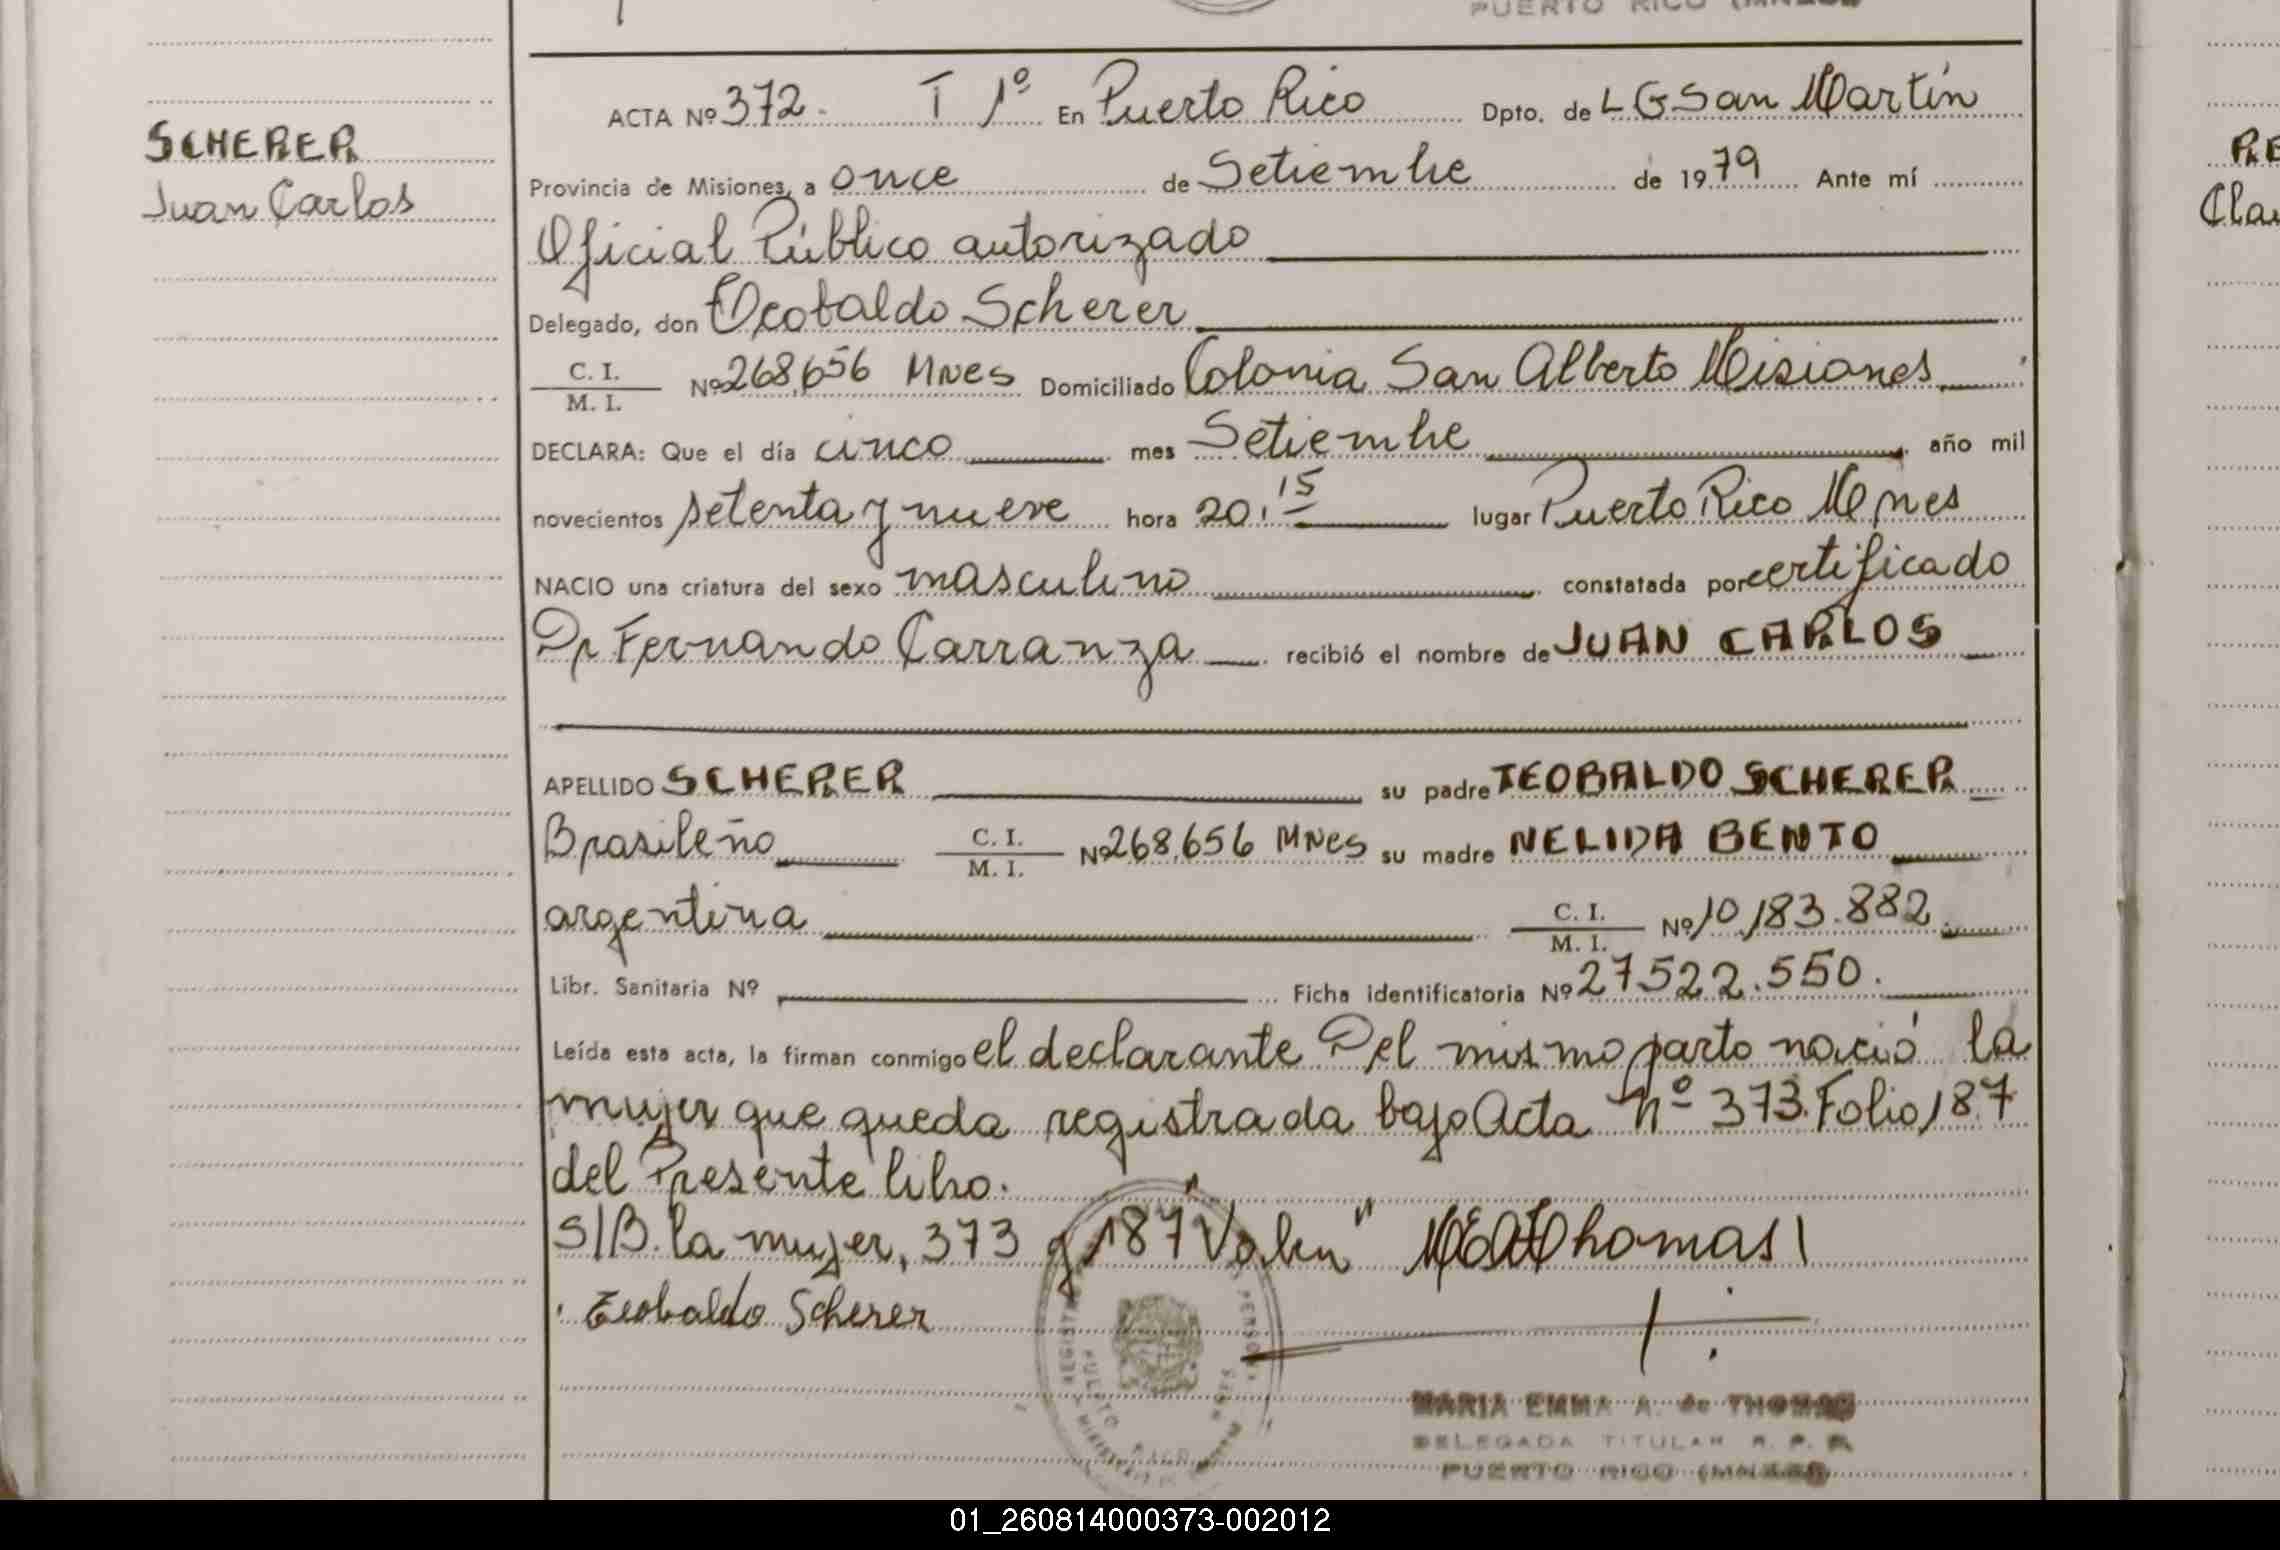 PUERTO RICO
ACTA Nº 372. T 1º En Puerto Rico Dpto. de L G San Martín
SCHERER
Provincia de Misiones, a once de Setiembre de 1979 Ante mí
Juan Carlos
Oficial Público autorizado
Delegado, don Teobaldo Scherer
C. I.
M. I.
Nº 268.656 MNes Domiciliado Colonia San Alberto Misiones
DECLARA: Que el día cinco mes Setiembre año mil
novecientos setenta y nueve hora 20.15 lugar Puerto Rico Mnes
NACIO una criatura del sexo masculino constatada por certificado
Dr Fernando Carranza recibió el nombre de JUAN CARLOS
APELLIDO SCHERER su padre TEOBALDO SCHERER
Brasileño C. I. M. I. Nº 268.656 MNes su madre NELIDA BENTO
argentina C. I. M. I. Nº 10.183.882
Libr. Sanitaria Nº Ficha identificatoria Nº 27522.550.
Leída esta acta, la firman conmigo el declarante Del mismo parto nació la
mujer que queda registrada bajo Acta nº 373. Folio 187
del Presente libro.
S/B. la mujer, 373 y 187 "Valen" MEAThomas
Teobaldo Scherer
MARIA EMMA A. de THOMAS
DELEGADA TITULAR R. P. P.
PUERTO RICO
01_260814000373-002012